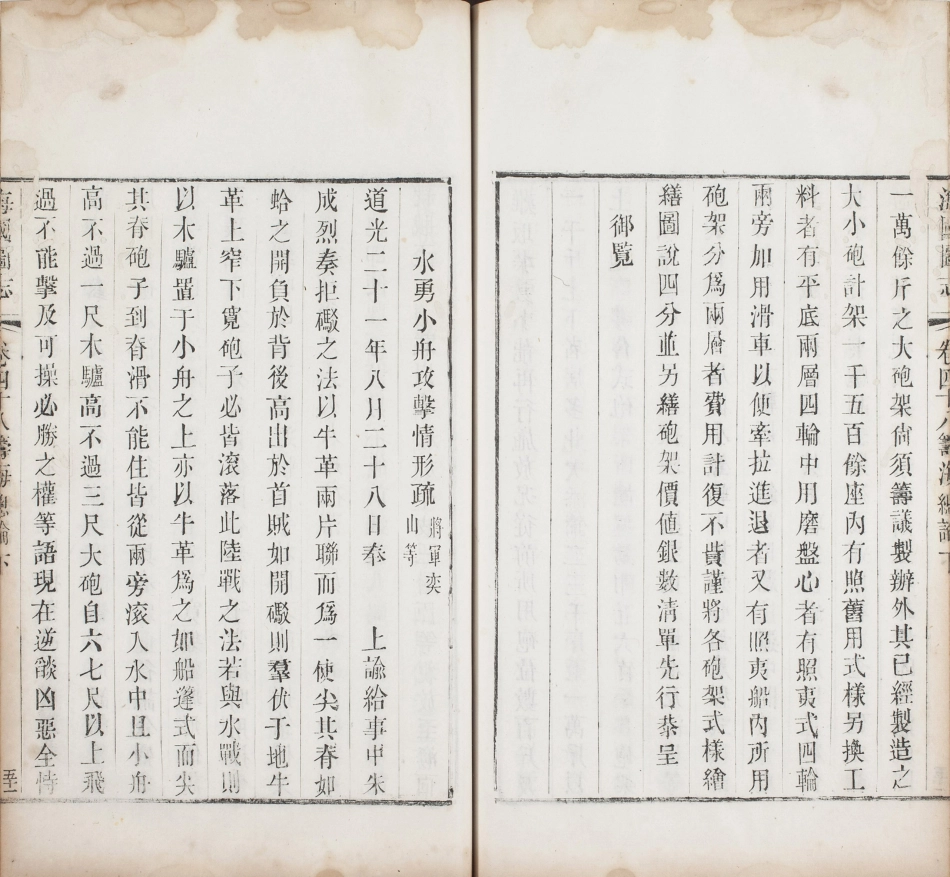 一萬餘斤之大砲架尙須籌議製辦外其已經製造之
大小砲計架一千五百餘座內有照舊用式樣另換工
料者有平底兩層四輪中用磨盤心者有照夷式四輪
兩旁加用滑車以便牽拉進退者又有照夷船內所用
砲架分爲兩層者費用計復不貲謹將各砲架式樣繪
繕圖說四分並另繕砲架價値銀數淸單先行恭呈
御覽
水勇小舟攻擊情形疏 將軍奕山等
道光二十一年八月二十八日奉 上諭給事中朱
成烈奏拒礮之法以牛革兩片聯而爲一使尖其脊如
蛤之開負於背後高出於首賊如開礮則羣伏于地牛
革上窄下寛砲子必皆滾落此陸戰之法若與水戰則
以木驢置于小舟之上亦以牛革爲之如船篷式而尖
其脊砲子到脊滑不能住皆從兩旁滚入水中且小舟
高不過一尺木驢高不過三尺大砲自六七尺以上飛
過不能擊及可操必勝之權等語現在逆燄凶惡全恃
海國圖志 卷四十八籌海總論下 五十一